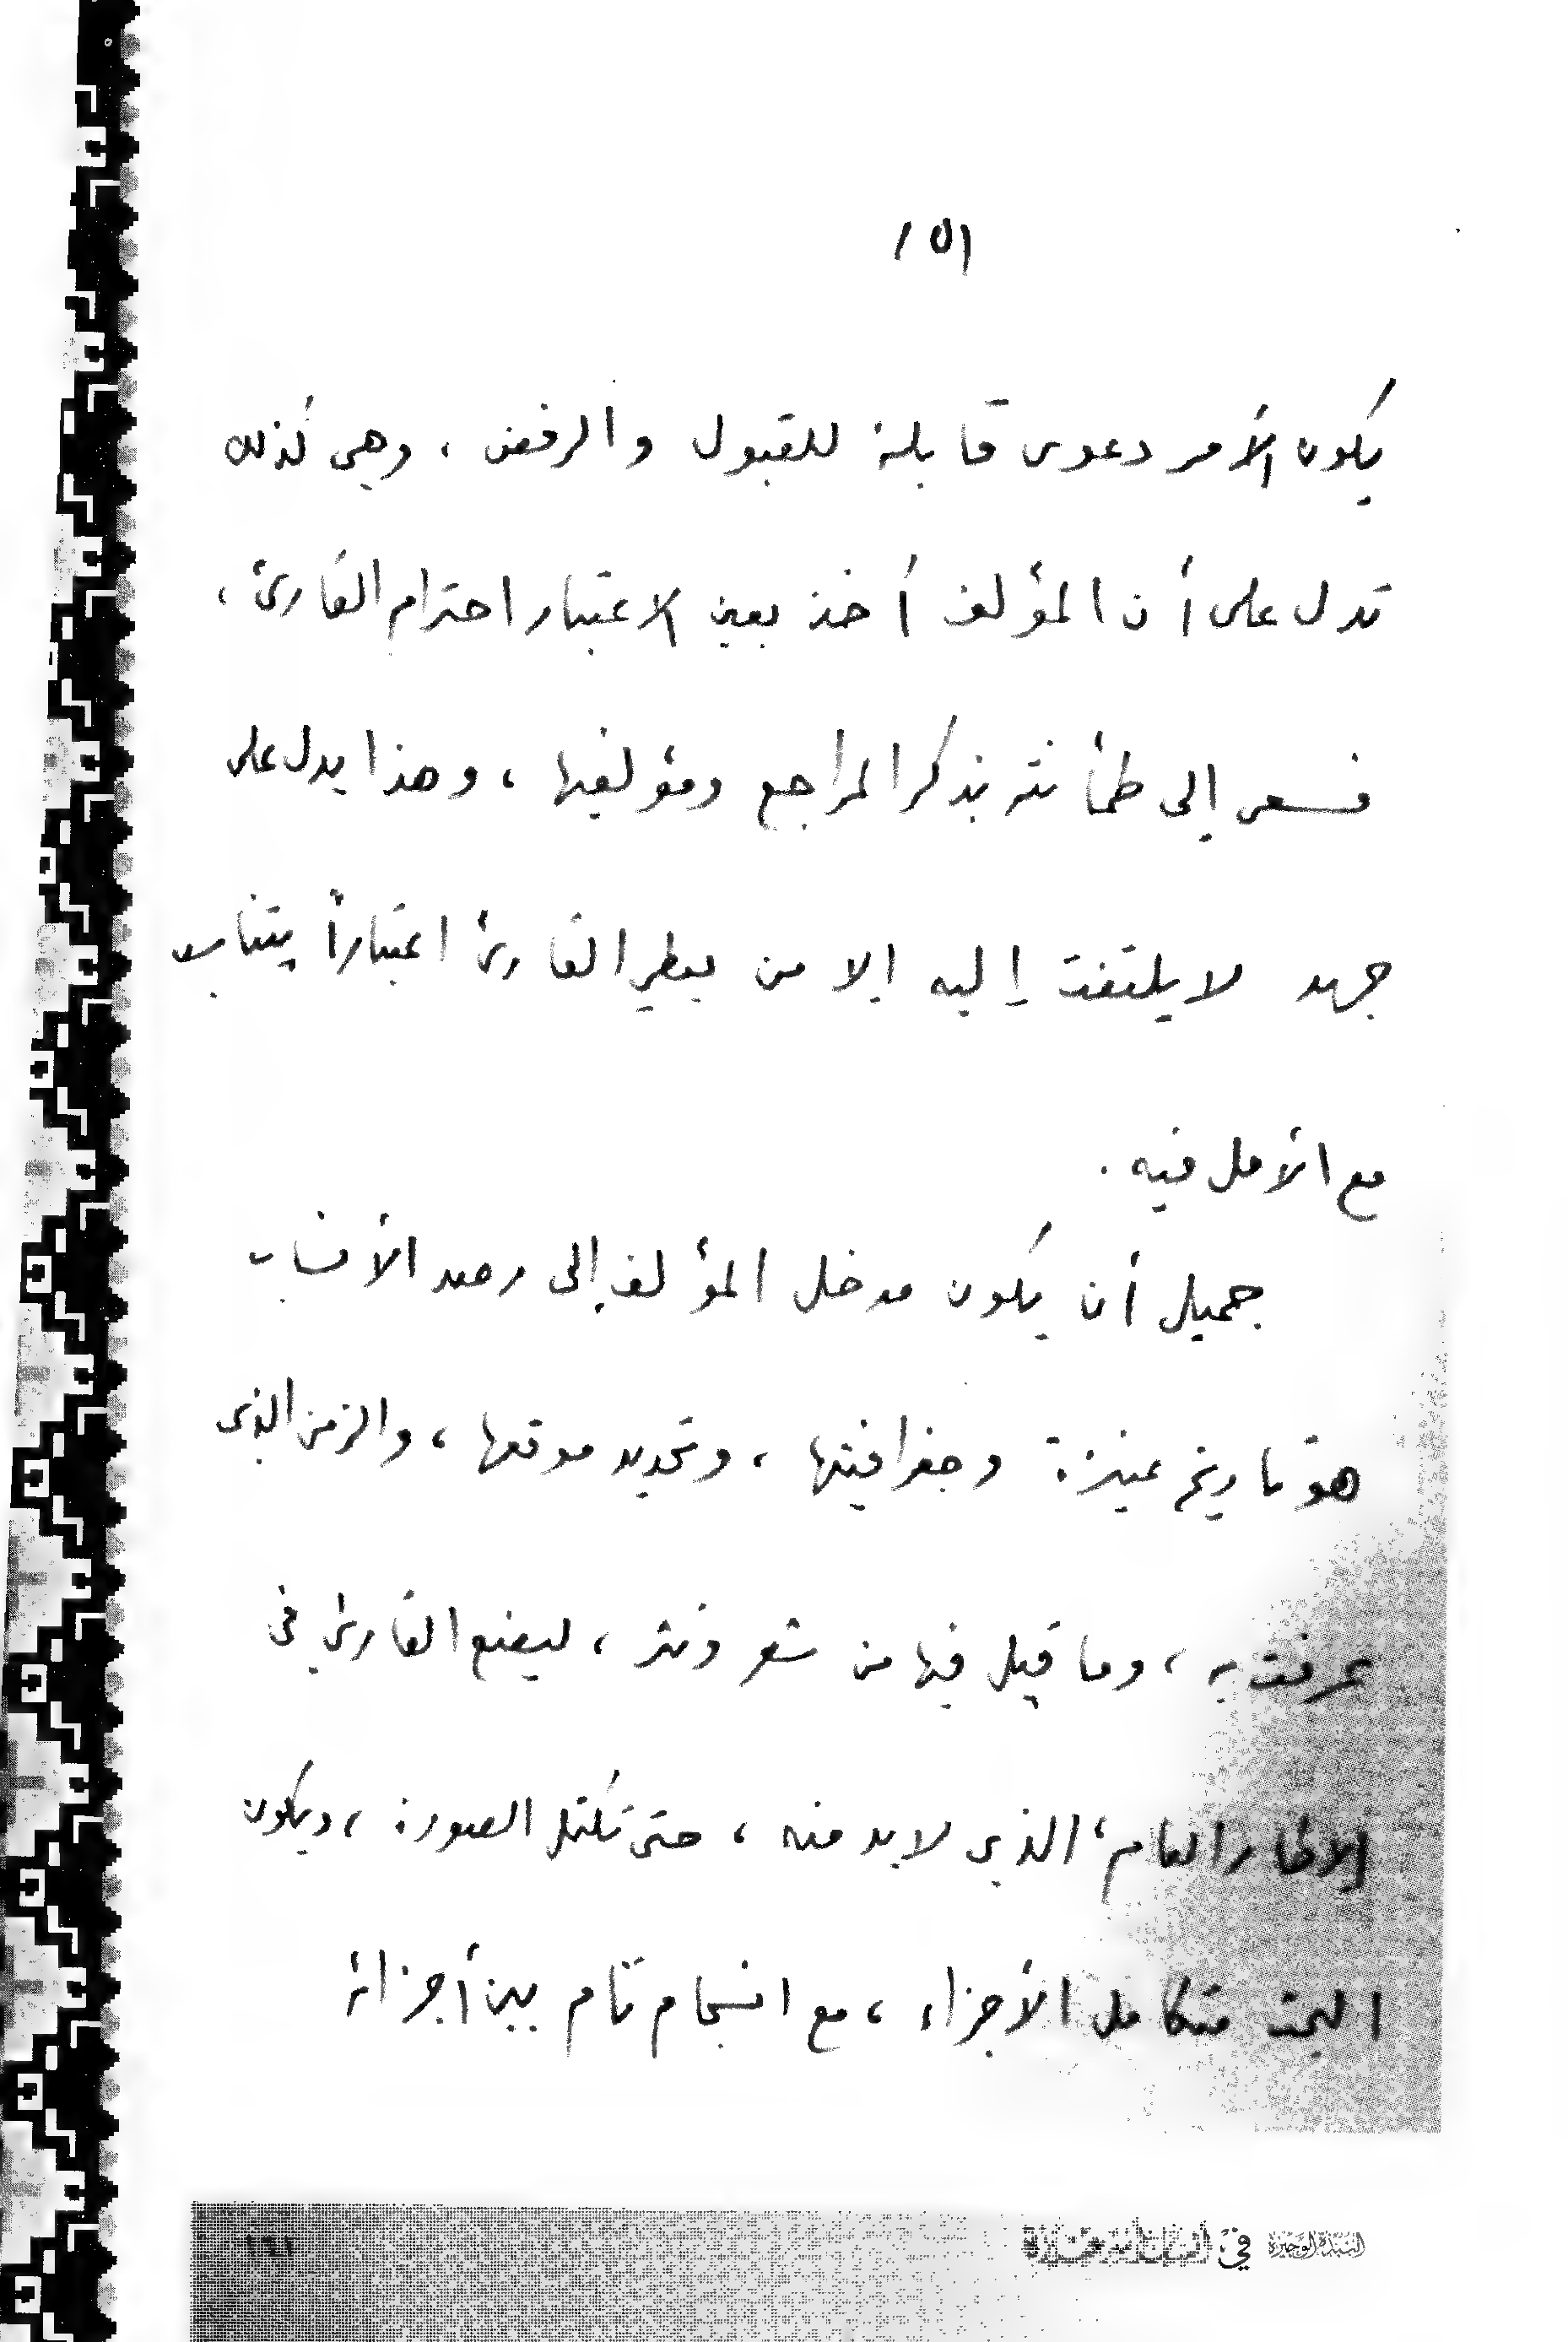 ١٥١
يكون الأمر دعوى قابلة للقبول والرفض ، وهي كذلك
تدل على أن المؤلف أخذ بعين الاعتبار احترام القارئ ،
فسعى إلى طمأنته بذكر المراجع ومؤلفيها ، وهذا يدل على
جهد لا يلتفت إليه إلا من يعطي القارئ اعتباراً يتناسب
مع الأمل فيه .
جميل أن يكون مدخل المؤلف إلى رصد الأنساب
هو تاريخ عنيزة وجغرافيتها ، وتحديد موقعها ، والزمن الذي
عرفت به ، وما قيل فيها من شعر ونثر ، ليضع القارئ في
الإطار العام ، الذي لا بد منه ، حتى تكتمل الصورة ، ويكون
البحث متكامل الأجزاء ، مع انسجام تام بين أجزائه
النبذة الوجيزة في أنساب أسر عنيزة